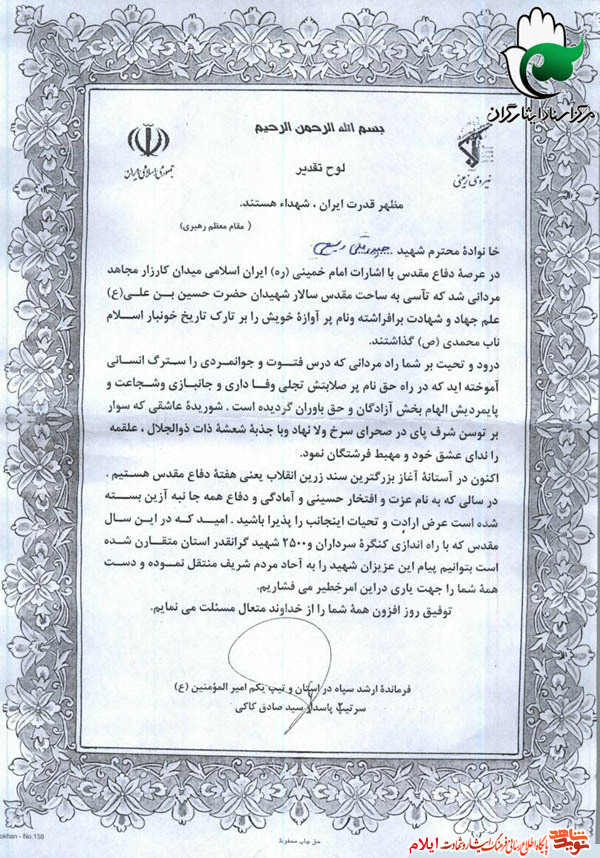 مرکز اسناد ایثارگران
بسم الله الرحمن الرحیم
جمهوری اسلامی ایران
نیروی زمینی
لوح تقدیر
مظهر قدرت ایران ، شهداء هستند.
( مقام معظم رهبری )
خانوادهٔ محترم شهید
در عرصهٔ دفاع مقدس با اشارات امام خمینی (ره) ایران اسلامی میدان کارزار مجاهد
مردانی شد که تآسی به ساحت مقدس سالار شهیدان حضرت حسین بن علی(ع)
علم جهاد و شهادت برافراشته ونام پر آوازهٔ خویش را بر تارک تاریخ خونبار اسلام
ناب محمدی (ص) گذاشتند.
درود و تحیت بر شما راد مردانی که درس فتوت و جوانمردی را سترگ انسانی
آموخته اید که در راه حق نام پر صلابتش تجلی وفا داری و جانبازی وشجاعت و
پایمردیش الهام بخش آزادگان و حق باوران گردیده است . شوریدهٔ عاشقی که سوار
بر توسن شرف پای در صحرای سرخ ولا نهاد وبا جذبهٔ شعشهٔ ذات ذوالجلال ، علقمه
را ندای عشق خود و مهبط فرشتگان نمود.
اکنون در آستانهٔ آغاز بزرگترین سند زرین انقلاب یعنی هفتهٔ دفاع مقدس هستیم .
در سالی که به نام عزت و افتخار حسینی و آمادگی و دفاع همه جا نبه آزین بسته
شده است عرض ارادت و تحیات اینجانب را پذیرا باشید . امید کـه در این سال
مقدس که با راه اندازی کنگرهٔ سرداران و۲۵۰۰ شهید گرانقدر استان متقارن شده
است بتوانیم پیام این عزیزان شهید را به آحاد مردم شریف منتقل نموده و دست
همهٔ شما را جهت یاری دراین امرخطیر می فشاریم.
توفیق روز افزون همهٔ شما را از خداوند متعال مسئلت می نمایم.
فرماندهٔ ارشد سپاه در استان و تیپ یکم امیر المؤمنین (ع)
سرتیپ پاسدار سید صادق کاکی
okhan - No.158
حق چاپ محفوظ
نوید شاهد پایگاه اطلاع رسانی فرهنگ ایثار و شهادت ایلام